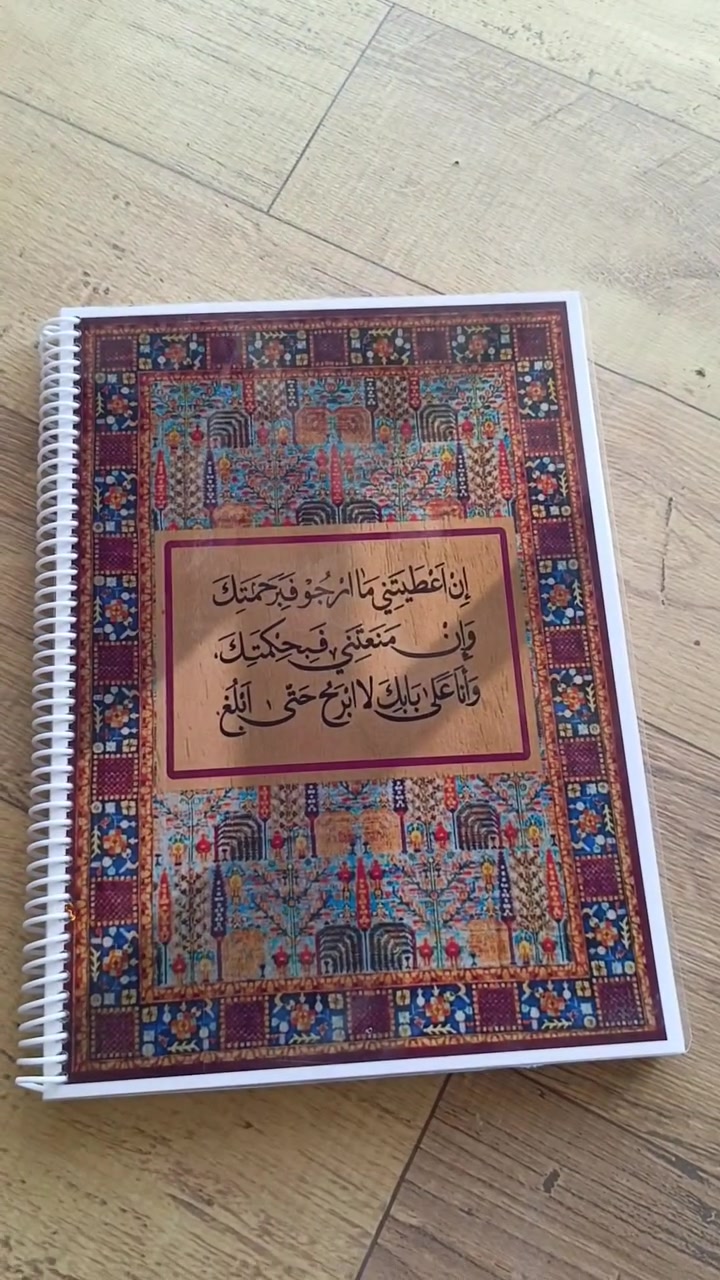 إِنْ أَعْطَيْتَنِي مَا أَرْجُوْ فَبِرَحْمَتِكَ
وَإِنْ مَنَعْتَنِي فَبِحِكْمَتِكَ
وَأَنَا عَلَى بَابِكَ لَا أَبْرَحُ حَتَّى أَبْلُغَ